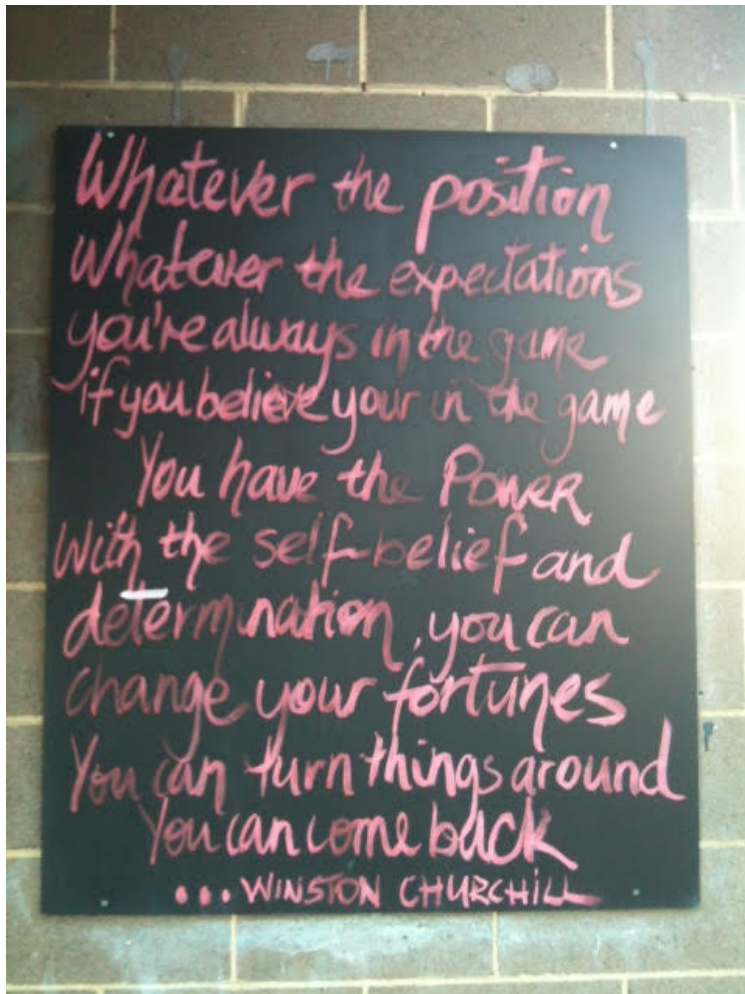 Whatever the position
Whatever the expectations
you're always in the game
if you believe your in the game
You have the Power
With the self-belief and
determination, you can
change your fortunes
You can turn things around
You can come back
... WINSTON CHURCHILL